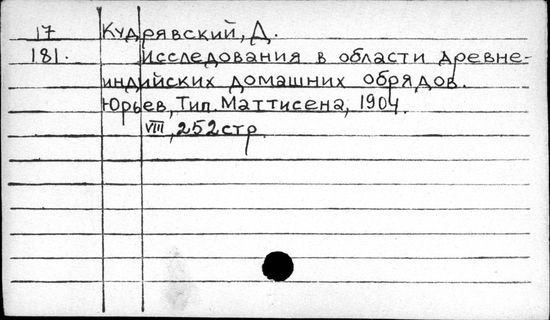 17 Кудрявский, Д.
181. Исследования в области древне-
индийских домашних обрядов.
Юрьев, Тип. Маттисена, 1904.
VIII, 252 стр.